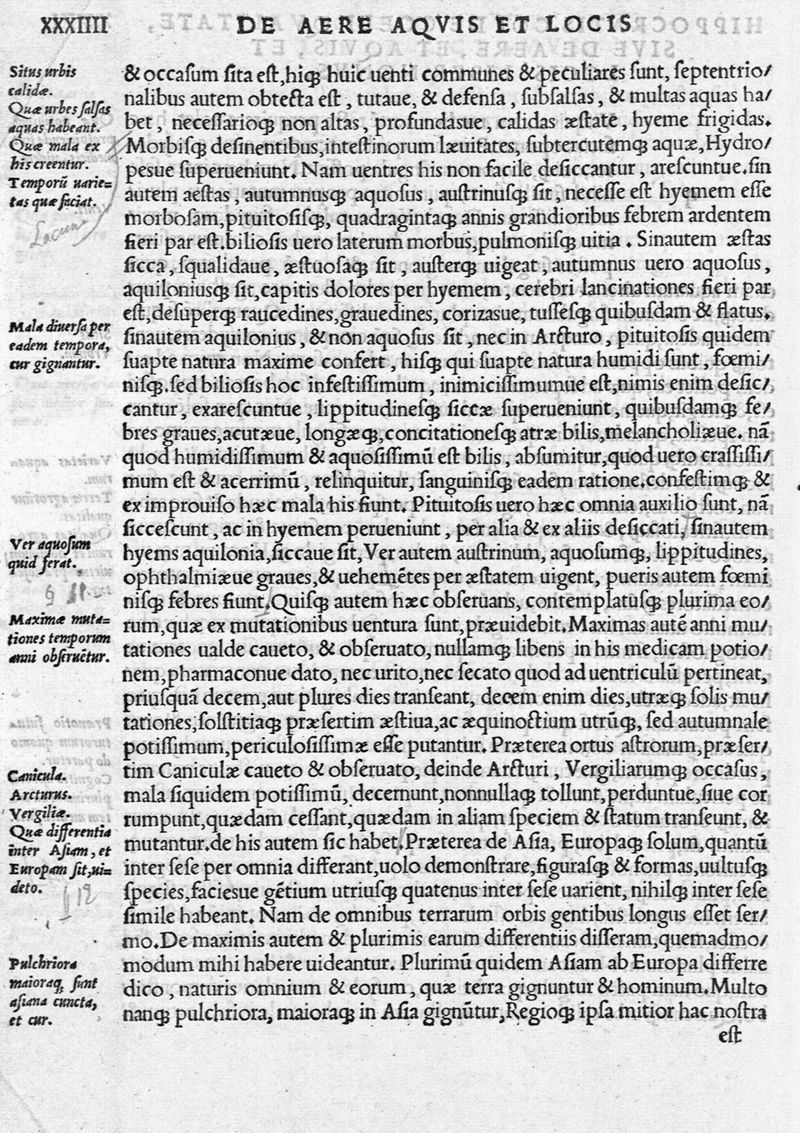 XXXIIII DE AERE AQVIS ET LOCIS
Situs urbis
calidæ.
Quæ urbes salsas
aquas habeant.
Quæ mala ex
his creentur.
Temporū uarie=
tas quæ faciat.
Mala diuersa per
eadem tempora,
cur gignantur.
Ver aquosum
quid ferat.
Maximæ muta=
tiones temporum
anni obseruētur.
Canicula.
Arcturus.
Vergiliæ.
Quæ differentia
inter Asiam, et
Europam sit, ui=
deto.
Pulchriora
maioraq;, sunt
asiana cuncta,
et cur.
& occasum sita est, hiq; huic uenti communes & peculiares sunt, septentrio/
nalibus autem obtecta est, tutaue, & defensa, subsalsas, & multas aquas ha/
bet, necessarioq; non altas, profundasue, calidas æstate, hyeme frigidas.
Morbisq; desinentibus, intestinorum læuitates, subtercutemq; aquæ, Hydro/
pesue superueniunt. Nam uentres his non facile desiccantur, arescuntue. sin
autem aestas, autumnusq; aquosus, austrinusq; sit, necesse est hyemem esse
morbosam, pituitosisq;, quadragintaq; annis grandioribus febrem ardentem
fieri par est. biliosis uero laterum morbus, pulmonisq; uitia. Sinautem æstas
sicca, squalidaue, æstuosaq; sit, austerq; uigeat, autumnus uero aquosus,
aquiloniusq; sit, capitis dolores per hyemem, cerebri lancinationes fieri par
est, desuperq; raucedines, grauedines, corizasue, tussesq; quibusdam & flatus.
sinautem aquilonius, & non aquosus sit, nec in Arcturo, pituitosis quidem
suapte natura maxime confert, hisq; qui suapte natura humidi sunt, fœmi/
nisq;. sed biliosis hoc infestissimum, inimicissimumue est, nimis enim desic/
cantur, exarescuntue, lippitudinesq; siccæ superueniunt, quibusdamq; fe/
bres graues, acutæue, longæq;, concitationesq; atræ bilis, melancholiæue. nā
quod humidissimum & aquosissimū est bilis, absumitur, quod uero crassissi/
mum est & acerrimū, relinquitur, sanguinisq; eadem ratione. confestimq; &
ex improuiso hæc mala his fiunt. Pituitosis uero hæc omnia auxilio sunt, nā
siccescunt, ac in hyemem perueniunt, per alia & ex aliis desiccati, sinautem
hyems aquilonia, siccaue sit, Ver autem austrinum, aquosumq;, lippitudines,
ophthalmiæue graues, & uehemētes per æstatem uigent, pueris autem fœmi
nisq; febres fiunt. Quisq; autem hæc obseruans, contemplatusq; plurima eo/
rum, quæ ex mutationibus uentura sunt, præuidebit. Maximas autē anni mu/
tationes ualde caueto, & obseruato, nullamq; libens in his medicam potio/
nem, pharmaconue dato, nec urito, nec secato quod ad uentriculū pertineat,
priusquā decem, aut plures dies transeant, decem enim dies, utræq; solis mu/
tationes, solstitiaq; præsertim æstiua, ac æquinoctium utrūq;, sed autumnale
potissimum, periculosissimæ esse putantur. Præterea ortus astrorum, præser/
tim Caniculæ caueto & obseruato, deinde Arcturi, Vergiliarumq; occasus,
mala siquidem potissimū, decernunt, nonnullaq; tollunt, perduntue, siue cor
rumpunt, quædam cessant, quædam in aliam speciem & statum transeunt, &
mutantur. de his autem sic habet. Præterea de Asia, Europaq; solum, quantū
inter sese per omnia differant, uolo demonstrare, figurasq; & formas, uultusq;
species, faciesue gētium utriusq; quatenus inter sese uarient, nihilq; inter sese
simile habeant. Nam de omnibus terrarum orbis gentibus longus esset ser/
mo. De maximis autem & plurimis earum differentiis disseram, quemadmo/
modum mihi habere uideantur. Plurimū quidem Asiam ab Europa differre
dico, naturis omnium & eorum, quæ terra gignuntur & hominum. Multo
nanq; pulchriora, maioraq; in Asia gignūtur, Regioq; ipsa mitior hac nostra
est